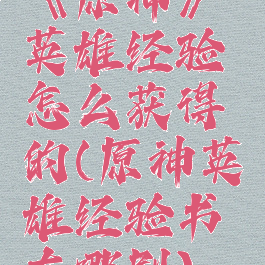 《原神》
英雄经验
怎么获得
的(原神英
雄经验书
在哪刷)